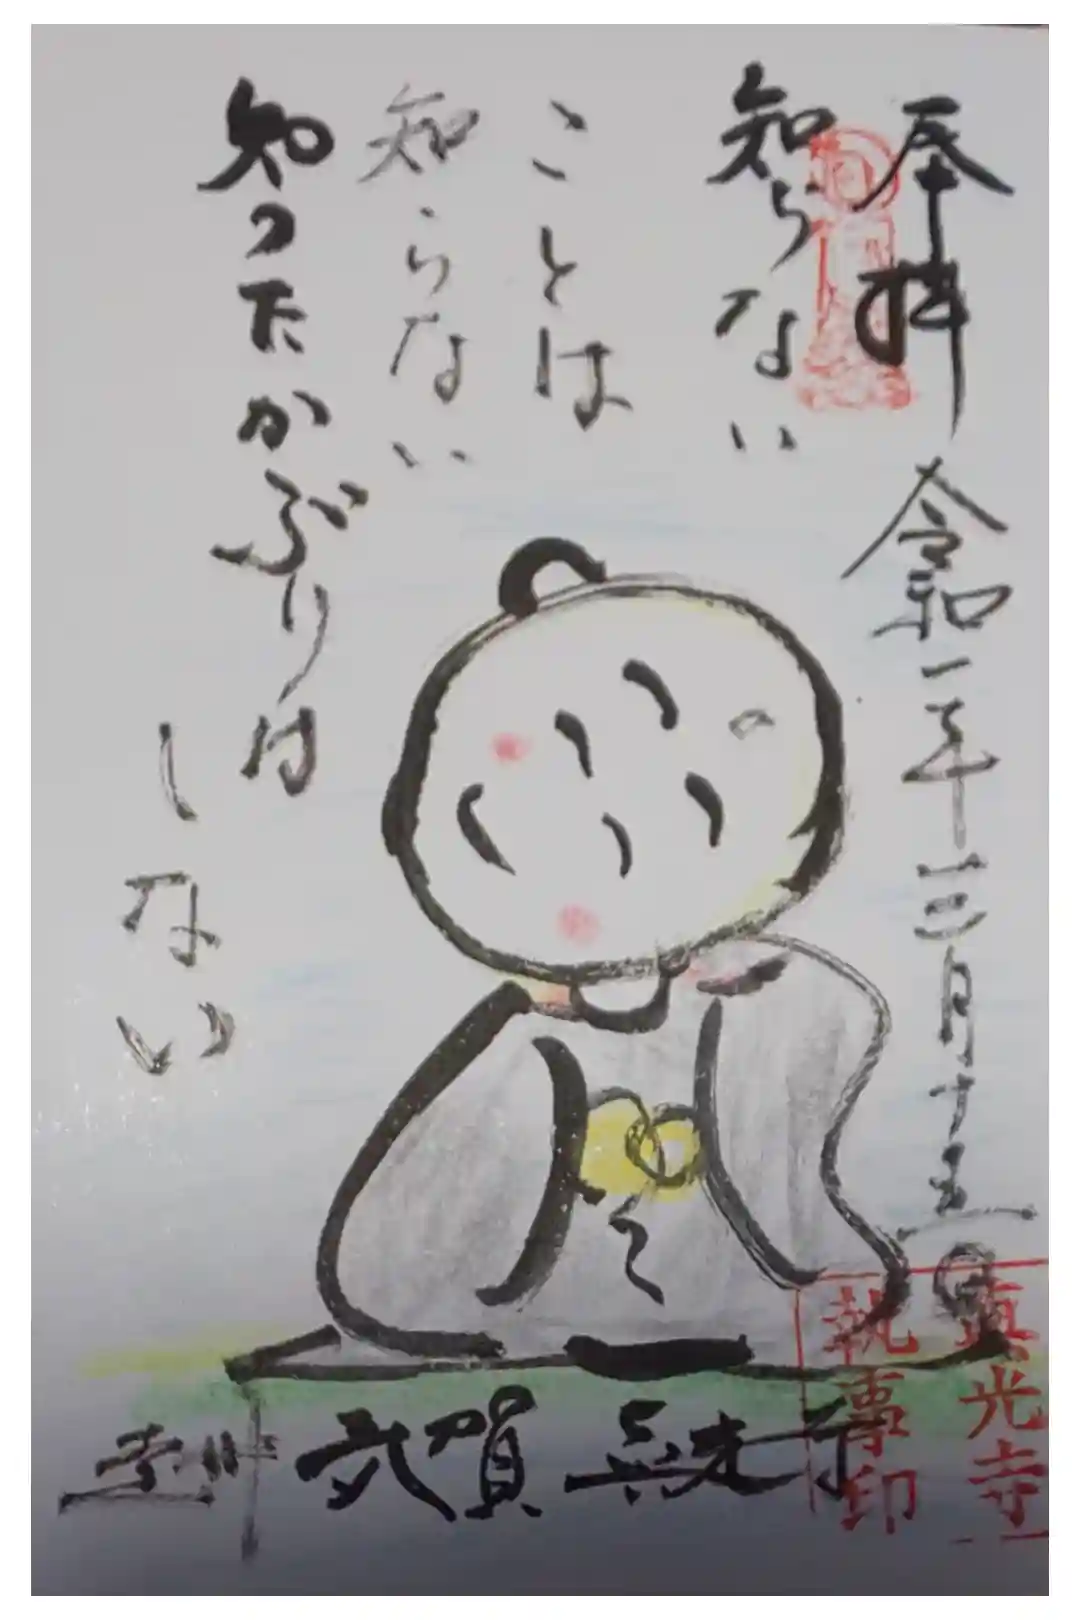 奉拝 令和二年三月十五日
知らない
ことは
知らない
知ったかぶりは
しない
真光寺
真光寺
執事印